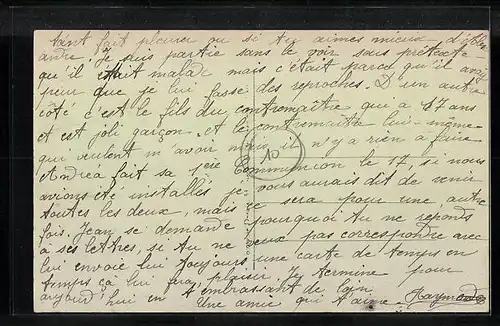 tant fait pleurer ou si tu aimes mieux d'Alex
andre. Je suis partie sans le voir sous prétexte
qu'il était malade mais c'était parce qu'il avait
peur que je lui fasse des reproches. D'un autre
côté c'est le fils du contremaître qui a 17 ans
et est joli garçon et le contremaître lui-même
qui veulent m'avoir mais il n'y a rien à faire
Andrea fait sa 1ère Communion le 17, si nous
avions été installés je vous aurais dit de venir
toutes les deux, mais ce sera pour une autre
fois. Jean se demande pourquoi tu ne reponds
à ses lettres, si tu ne veux pas correspondre avec
lui envoie lui toujours une carte de temps en
temps ça lui fera plaisir. Je termine pour
aujourd'hui en t'embrassant de loin
Une amie qui t'aime Raymonde
10